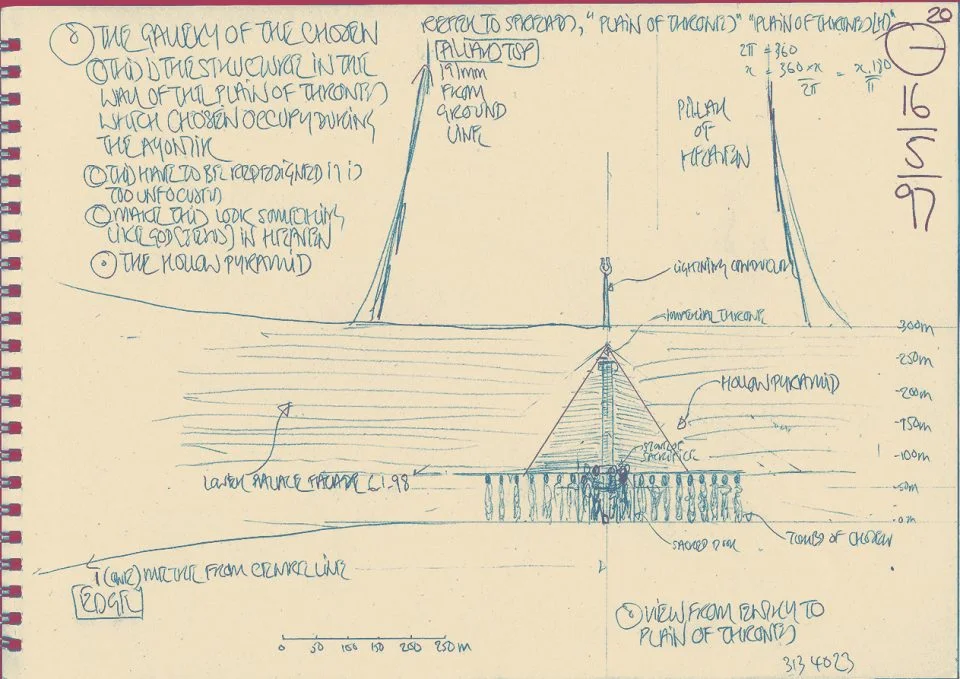 THE GALLERY OF THE CHOSEN
THIS IS THE STRUCTURE IN THE
WALL OF THE PLAIN OF THRONES
WHICH CHOSEN OCCUPY DURING
THE
THIS HAVE TO BE REDESIGNED IT IS
TOO UNFOCUSED
MAKE THIS LOOK SOMETHING
LIKE GOD (ZEUS) IN HEAVEN
THE HOLLOW PYRAMID
REFER TO SPREADS, "PLAIN OF THRONES" "PLAIN OF THRONES
20
1
16/5/97
PILLAR TOP
191mm
FROM
GROUND
LINE
2π = 360
x = 360 × x / 2π = x.180 / π
PILLAR
OF
HEAVEN
LIGHTNING CONDUCTOR
IMPERIAL THRONE
HOLLOW PYRAMID
STAIR OF
SACRIFICE
-300m
-250m
-200m
-150m
-100m
-50m
-0m
LOWER PALACE FACADE
SACRED POOL
TOMBS OF CHOSEN
1 (ONE) METRE FROM CENTRE LINE
EDGE
VIEW FROM ENTRY TO
PLAIN OF THRONES
0 50 100 150 200 250m
313 4023